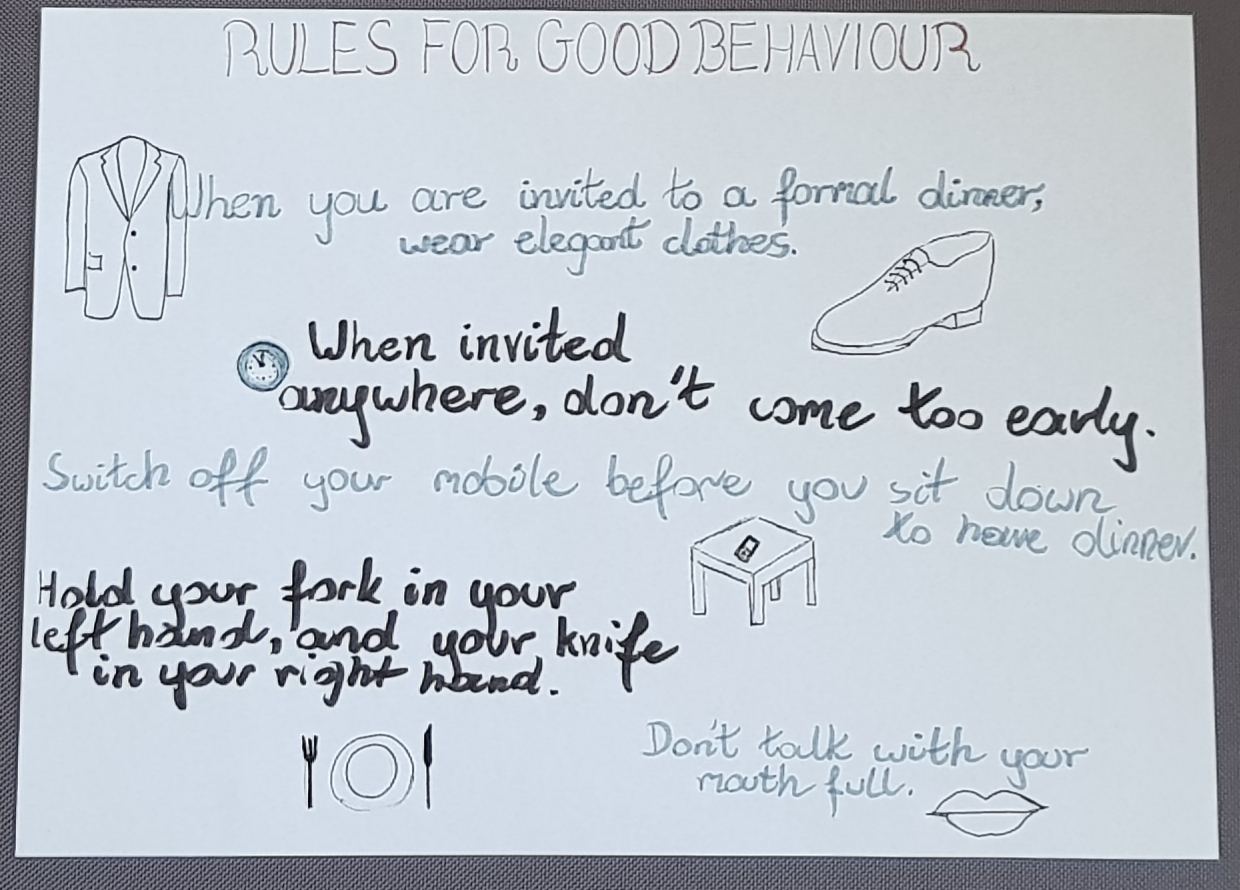 RULES FOR GOOD BEHAVIOUR
When you are invited to a formal dinner,
wear elegant clothes.
When invited
anywhere, don't come too early.
Switch off your mobile before you sit down
to have dinner.
Hold your fork in your
left hand, and your knife
in your right hand.
Don't talk with your
mouth full.